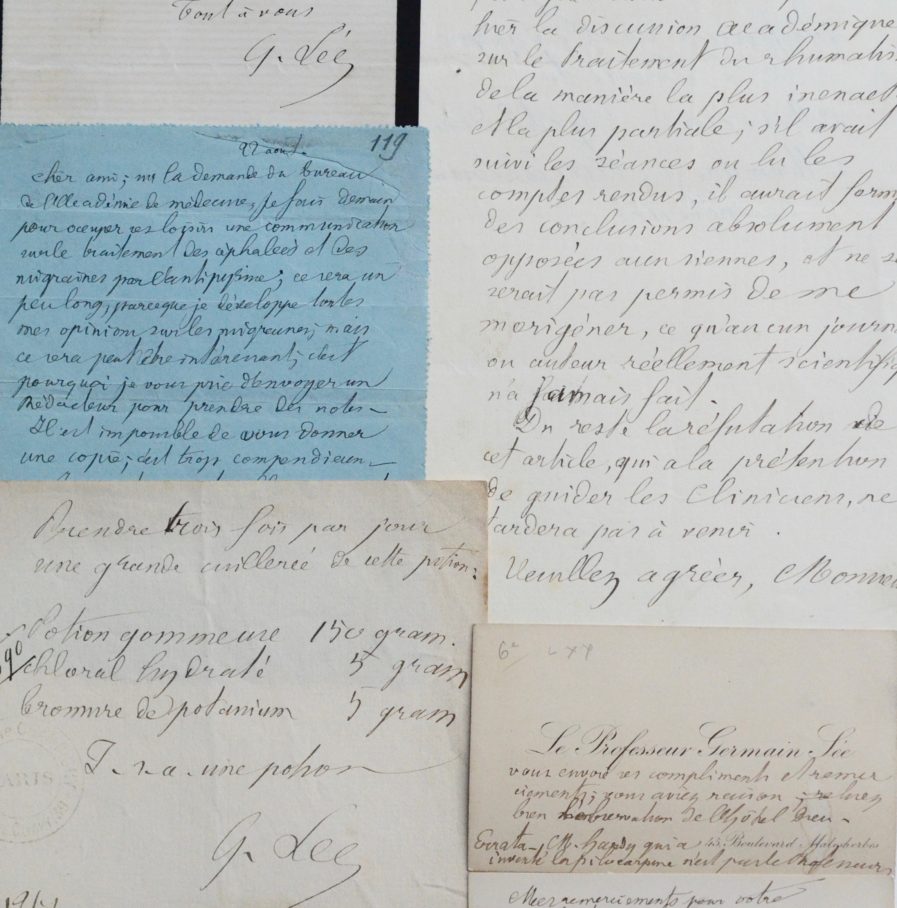 Tout à vous
G. Sée
119
22 aout.
cher ami; sur la demande du bureau
de l'Académie de médecine, je fais demain
pour occuper ses loisirs une communication
sur le traitement des céphalées et des
migraines par l'antipyrine; ce sera un
peu long, parceque je développe toutes
mes opinions sur les migraines; mais
ce sera peut être intéressant; c'est
pourquoi je vous prie d'envoyer un
Rédacteur pour prendre des notes—
Il est impossible de vous donner
une copie; c'est trop compendieux—
hier la discussion académique
sur le traitement du rhumatis
de la manière la plus inexact
et la plus partiale; s'il avait
suivi les séances ou lu les
comptes rendus, il aurait form
des conclusions absolument
opposées aux siennes, et ne s
serait pas permis de me
morigéner, ce qu'aucun journ
ou auteur réellement scientifiq
n'a jamais fait.
Du reste la réfutation de
cet article, qui a la prétention
de guider les cliniciens, ne
tardera pas à venir.
Veuillez agréer, Monsieu
Prendre trois fois par jour
une grande cuillereé de cette potion:
Potion gommeuse 150 gram.
chloral hydraté 5 gram
bromure de potassium 5 gram
F. s. a. une potion
G. Sée
PARIS
Le Professeur Germain-Sée
vous envoie ses compliments et remer
ciements; vous aviez raison;
bien l'observation de l'hôtel Dieu—
Errata—, M. hardy qui a 65 Boulevard Malesherbes
inventé la pilocarpine n'est pas le Professeur
Mes remerciements pour votre